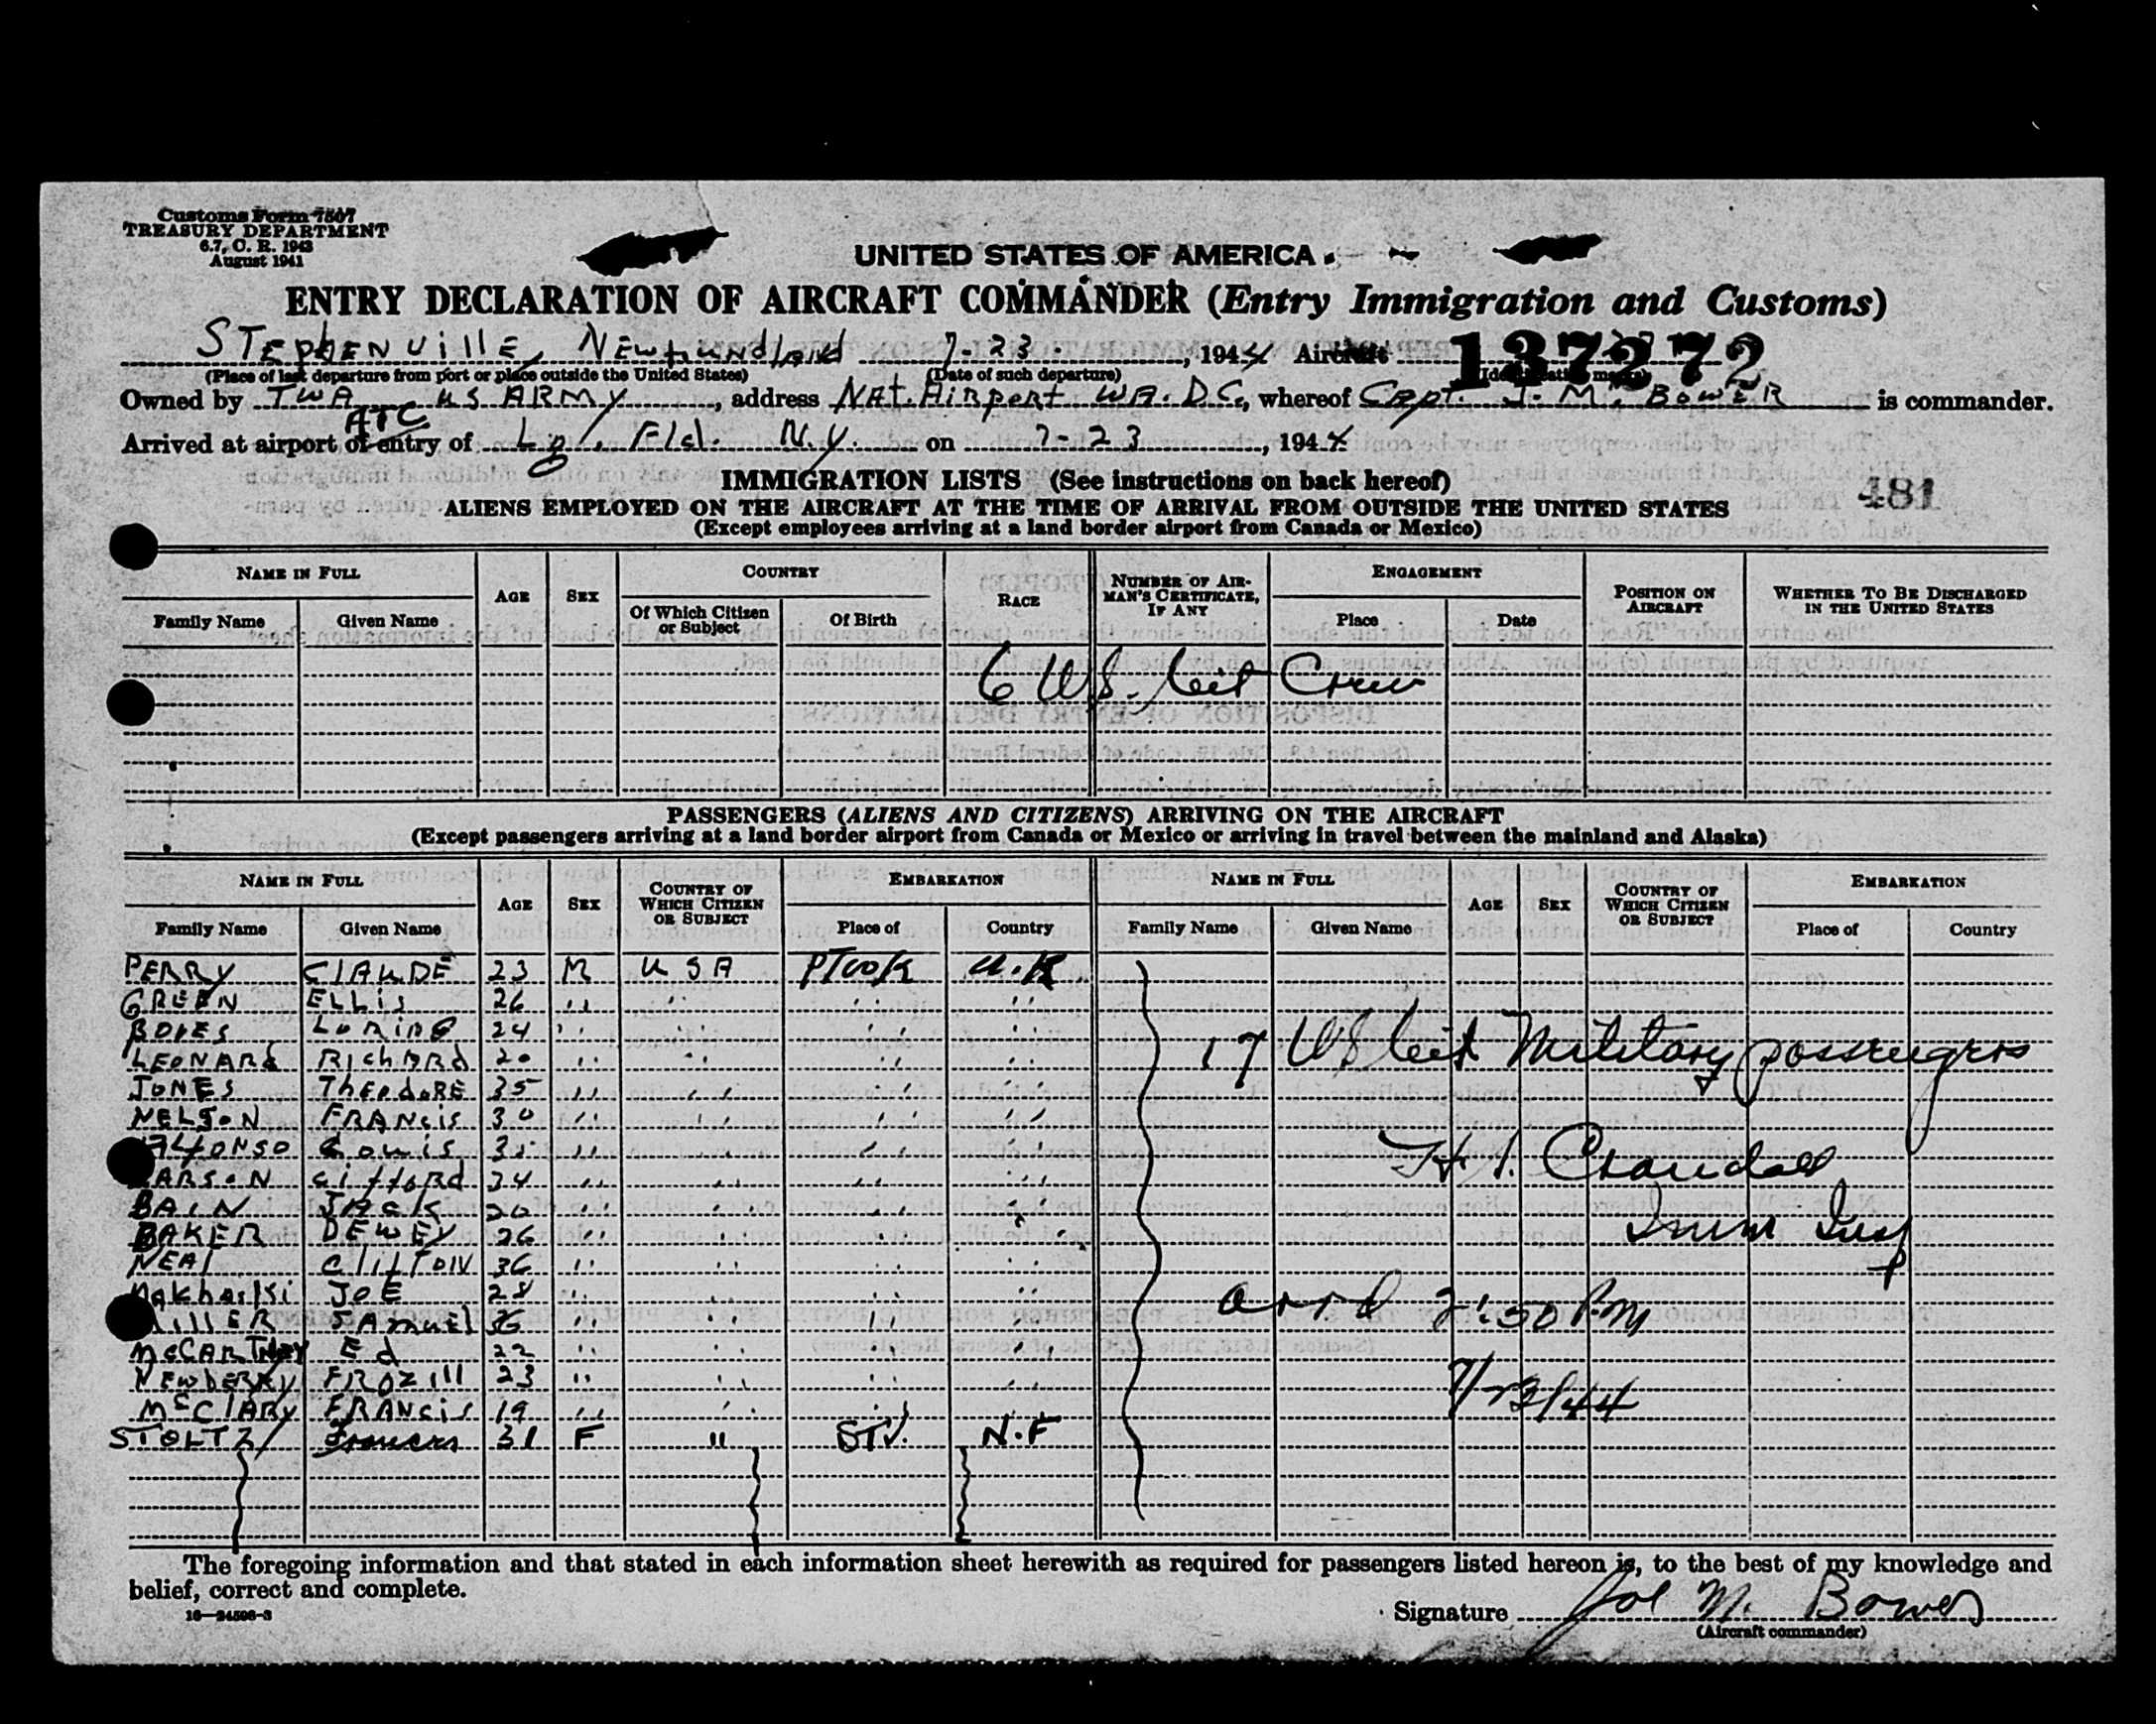 Customs Form 7507
TREASURY DEPARTMENT
6.7, C. R. 1943
August 1941
UNITED STATES OF AMERICA
ENTRY DECLARATION OF AIRCRAFT COMMANDER (Entry Immigration and Customs)
STEphENVille, NEwfoundland 7-23. , 1944 Aircraft 137272
(Place of last departure from port or place outside the United States) (Date of such departure) (Identification marks)
Owned by TWA US ARMY, address NAt. AiRpoRt WA. D.C., whereof CApt. J. M. BowER is commander.
ATC
Arrived at airport of entry of Lg. Fld. N.Y. on 7-23, 1944
IMMIGRATION LISTS (See instructions on back hereof)
481
ALIENS EMPLOYED ON THE AIRCRAFT AT THE TIME OF ARRIVAL FROM OUTSIDE THE UNITED STATES
(Except employees arriving at a land border airport from Canada or Mexico)
NAME IN FULL AGE SEX COUNTRY RACE NUMBER OF AIRMAN'S CERTIFICATE, IF ANY ENGAGEMENT POSITION ON AIRCRAFT WHETHER TO BE DISCHARGED IN THE UNITED STATES
Family Name Given Name Of Which Citizen or Subject Of Birth Place Date
6 U.S. Cit Crew
PASSENGERS (ALIENS AND CITIZENS) ARRIVING ON THE AIRCRAFT
(Except passengers arriving at a land border airport from Canada or Mexico or arriving in travel between the mainland and Alaska)
NAME IN FULL AGE SEX COUNTRY OF WHICH CITIZEN OR SUBJECT EMBARKATION NAME IN FULL AGE SEX COUNTRY OF WHICH CITIZEN OR SUBJECT EMBARKATION
Family Name Given Name Place of Country Family Name Given Name Place of Country
PERRY ClAUDE 23 M USA PTWOK U.K
GREEN ELLis 26 " " " "
LoRiNG 24 " " " "
LEONARd RIchARd 20 " " " "
17 US Cit Military passengers
JONES ThEodoRE 35 " " " "
NELSoN FRANcis 30 " " " "
Louis " " " "
H. I. Crandall
ciffoRd 34 " " " "
BAIN JAck 20 " " " "
Imm Insp
BAKER DEWEY 26 " " " "
NEAl cliftoN 36 " " " "
JoE 28 " " " "
arrd 2:50 P.M
MillER SAmuEl 36 " " " "
McCARTNEY Ed 22 " " " "
NEWbERRY FROZIll 23 " " " "
7/23/44
McClARY FRANcis 19 " " " "
STOLTZ Frances 31 F " STV. N.F
The foregoing information and that stated in each information sheet herewith as required for passengers listed hereon is, to the best of my knowledge and
belief, correct and complete.
16—24596-3
Signature Joe M. Bower
(Aircraft commander)